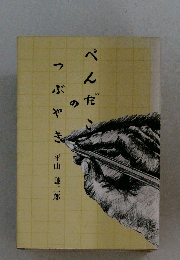 ぺんだこ
の
つぶやき
平山